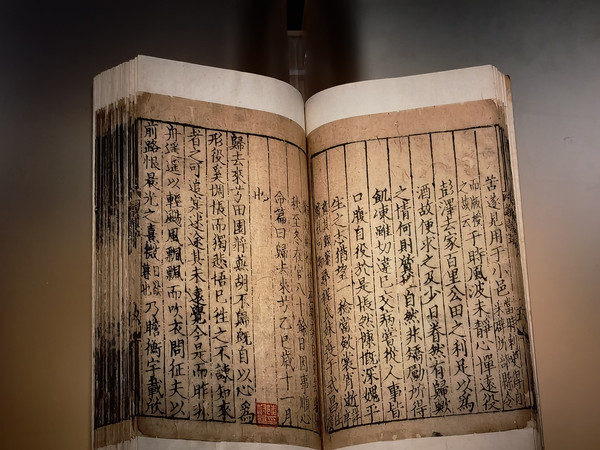 苦遂見用于小邑
于時風波未靜心憚遠役
彭澤去家百里公田之利足以為
酒故便求之及少日眷然有歸歟
之情何則質性自然非矯厲所得
飢凍雖切違己交病嘗從人事皆
口腹自役於是悵然慷慨深愧平
生之志猶望一稔當斂裳宵逝
武昌
秋至冬在官八十餘日因事順心
命篇曰歸去來兮乙巳歲十一月
也
歸去來兮田園將蕪胡不歸既自以心為
形役奚惆悵而獨悲悟已往之不諫知來
者之可追寔迷途其未遠覺今是而昨非
舟遥遥以輕颺風飄飄而吹衣問征夫以
前路恨晨光之熹微乃瞻衡宇載欣